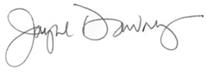 Jayne Downey